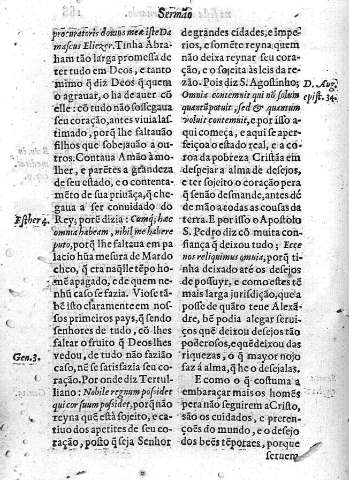 Sermão
procuratoris domus meæ iste Da
mascus Eliezer. Tinha Abra-
ham tão larga promessa de
ter tudo em Deos, e tanto
mimo q̃ diz Deos q̃ quem
o agrauar, o ha de auer cõ
elle: cõ tudo não sossegaua
seu coração, antes viuia las-
timado, porq̃ lhe faltauão
filhos que sobejauão a ou-
tros. Contaua Amão à mo-
lher, e parẽtes a grandeza
de seu estado, e o contenta-
mẽto de sua priuãça, q̃ che
gaua a ser comuidado do
Esther 4.
Rey; porẽ dizia: Cumq; hæc
omnia habeam, nihil me habere
puto, porq̃ lhe faltaua em pa
lacio hũa mesura de Mardo
cheo, q̃ era naq̃lle tẽpo ho-
mẽ apagado, e de quem ne-
nhũ caso se fazia. Viose tã-
bẽ isto claramente em nos-
sos primeiros pays, q̃ sendo
senhores de tudo, cõ lhes
faltar o fruito q̃ Deos lhes
Gen. 3.
vedou, de tudo não fazião
caso, nẽ se satisfazia seu co-
ração. Por onde diz Tertul-
liano: Nobile regnum possidet
qui cor suum possidet, porq̃ não
reyna que está sojeito, e ca-
tiuo dos apetites de seu co-
ração, posto q̃ seja Senhor
de grandes cidades, e impe-
rios, e somẽte reyna, quem
não deixa reynar seu cora-
ção, e o sojeita às leis da re-
zão. Pois diz S. Agostinho;
D. Aug.
epist. 34.
Omnia contemnit qui nõ solum
quantũ potuit, sed & quantum
voluit contemnit, e por isso a
qui começa, e aqui se aper-
feiçoa o estado real, e a co-
roa da pobreza Cristã em
despejar a alma de desejos,
e ter sojeito o coração pera
q̃ senão desmande, antes dé
de mão a todas as cousas da
terra. E por isso o Apostolo
S. Pedro diz cõ muita con-
fiança q̃ deixou tudo; Ecce
nos reliquimus omnia, porq̃ ti-
nha deixado até os desejos
de possuyr, e como estes tẽ
mais larga jurisdição, que a
posse de quãto teue Alexã-
dre, bẽ podia alegar serui-
ços quẽ deixou desejos tão
poderosos, e quẽ deixou das
riquezas, o q̃ mayor nojo
faz á alma, q̃ he o desejalas.
E como o q̃ costuma a
embaraçar mais os homẽs
pera não seguirem a Cristo,
são os cuidados, e preten-
ções do mundo, e o desejo
dos beẽs tẽporaes, porque
setuem